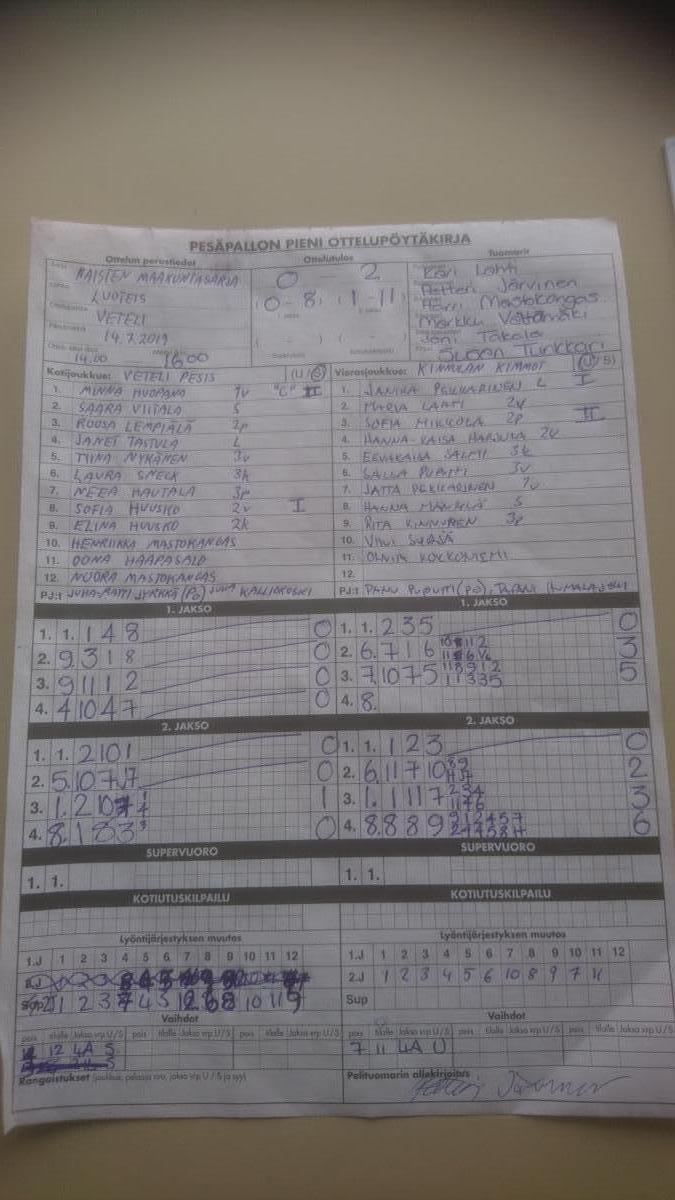 PESÄPALLON PIENI OTTELUPÖYTÄKIRJA
Ottelun perustiedot
Ottelutulos
Tuomarit
NAISTEN MAAKUNTASARJA
LUOTEIS
VETELI
14.7.2019
14.00 16.00
0 2
(0-8) (1-11)
Kari Lahti
Petteri Järvinen
Harri Mastokangas
Markku Vättämäki
Joni Takala
Tunkkari
Kotijoukkue: VETELI PESIS (U/S)
1. MINNA HUOPANA 1v "C" II
2. SAARA VIITALA S
3. ROOSA LEMPIÄLÄ 2p
4. JANET TASTULA L
5. TIINA NYKÄNEN 3v
6. LAURA SNECK 3k
7. NEEA HAUTALA 3p
8. SOFIA HUUSKO 2v I
9. ELINA HUUSKO 2k
10. HENRIIKKA MASTOKANGAS
11. OONA HAAPASALO
12. NOORA MASTOKANGAS
PJ:t JUHA-MATTI JYRKKÄ (PO) JUHA KALLIOKOSKI
Vierasjoukkue: KINNULAN KIMMOT (U/S)
1. JANIKA PEKKARINEN L I
2. MARIA LAHTI 2v
3. SOFIA MIKKOLA 2p II
4. HANNA-KAISA 2v
5. EEVAKAISA SALMI 3k
6. SALLA PUPUTTI 3v
7. JATTA PEKKARINEN 1v
8. HANNA S
9. RITA KINNUNEN 3p
10. VIIVI
11. OLIVIA KOKKONIEMI
12.
PJ:t PANU PUPUTTI (PO),
1. JAKSO
1. 1. 1 4 8 0
2. 9. 3 1 8 0
3. 9 11 1 2 0
4. 4 10 4 7 0
1. JAKSO
1. 1. 2 3 5 0
2. 6. 7 1 6 3
3. 7. 10 7 5 5
4. 8.
2. JAKSO
1. 1. 2 10 1 0
2. 5. 10 7 0
3. 1. 2 10 1
4. 8. 1 8 3 0
2. JAKSO
1. 1. 1 2 3 0
2. 6. 11 7 10 2
3. 1. 1 11 7 3
4. 8. 8 8 9 6
SUPERVUORO
1. 1.
SUPERVUORO
1. 1.
KOTIUTUSKILPAILU
KOTIUTUSKILPAILU
Lyöntijärjestyksen muutos
1.J 1 2 3 4 5 6 7 8 9 10 11 12
Sup 1 2 3 7 4 5 12 6 8 10 11 9
Lyöntijärjestyksen muutos
1.J 1 2 3 4 5 6 7 8 9 10 11 12
2.J 1 2 3 4 5 6 10 8 9 7 11
Sup
Vaihdot
pois tilalle Jakso vrp U/S pois tilalle Jakso vrp U/S pois tilalle Jakso vrp U/S
12 4A S
Vaihdot
pois tilalle Jakso vrp U/S pois tilalle Jakso vrp U/S pois tilalle Jakso vrp U/S
7 11 4A U
Rangaistukset (joukkue, pelaaja nro, jakso vrp U/S ja syy)
Pelituomarin allekirjoitus